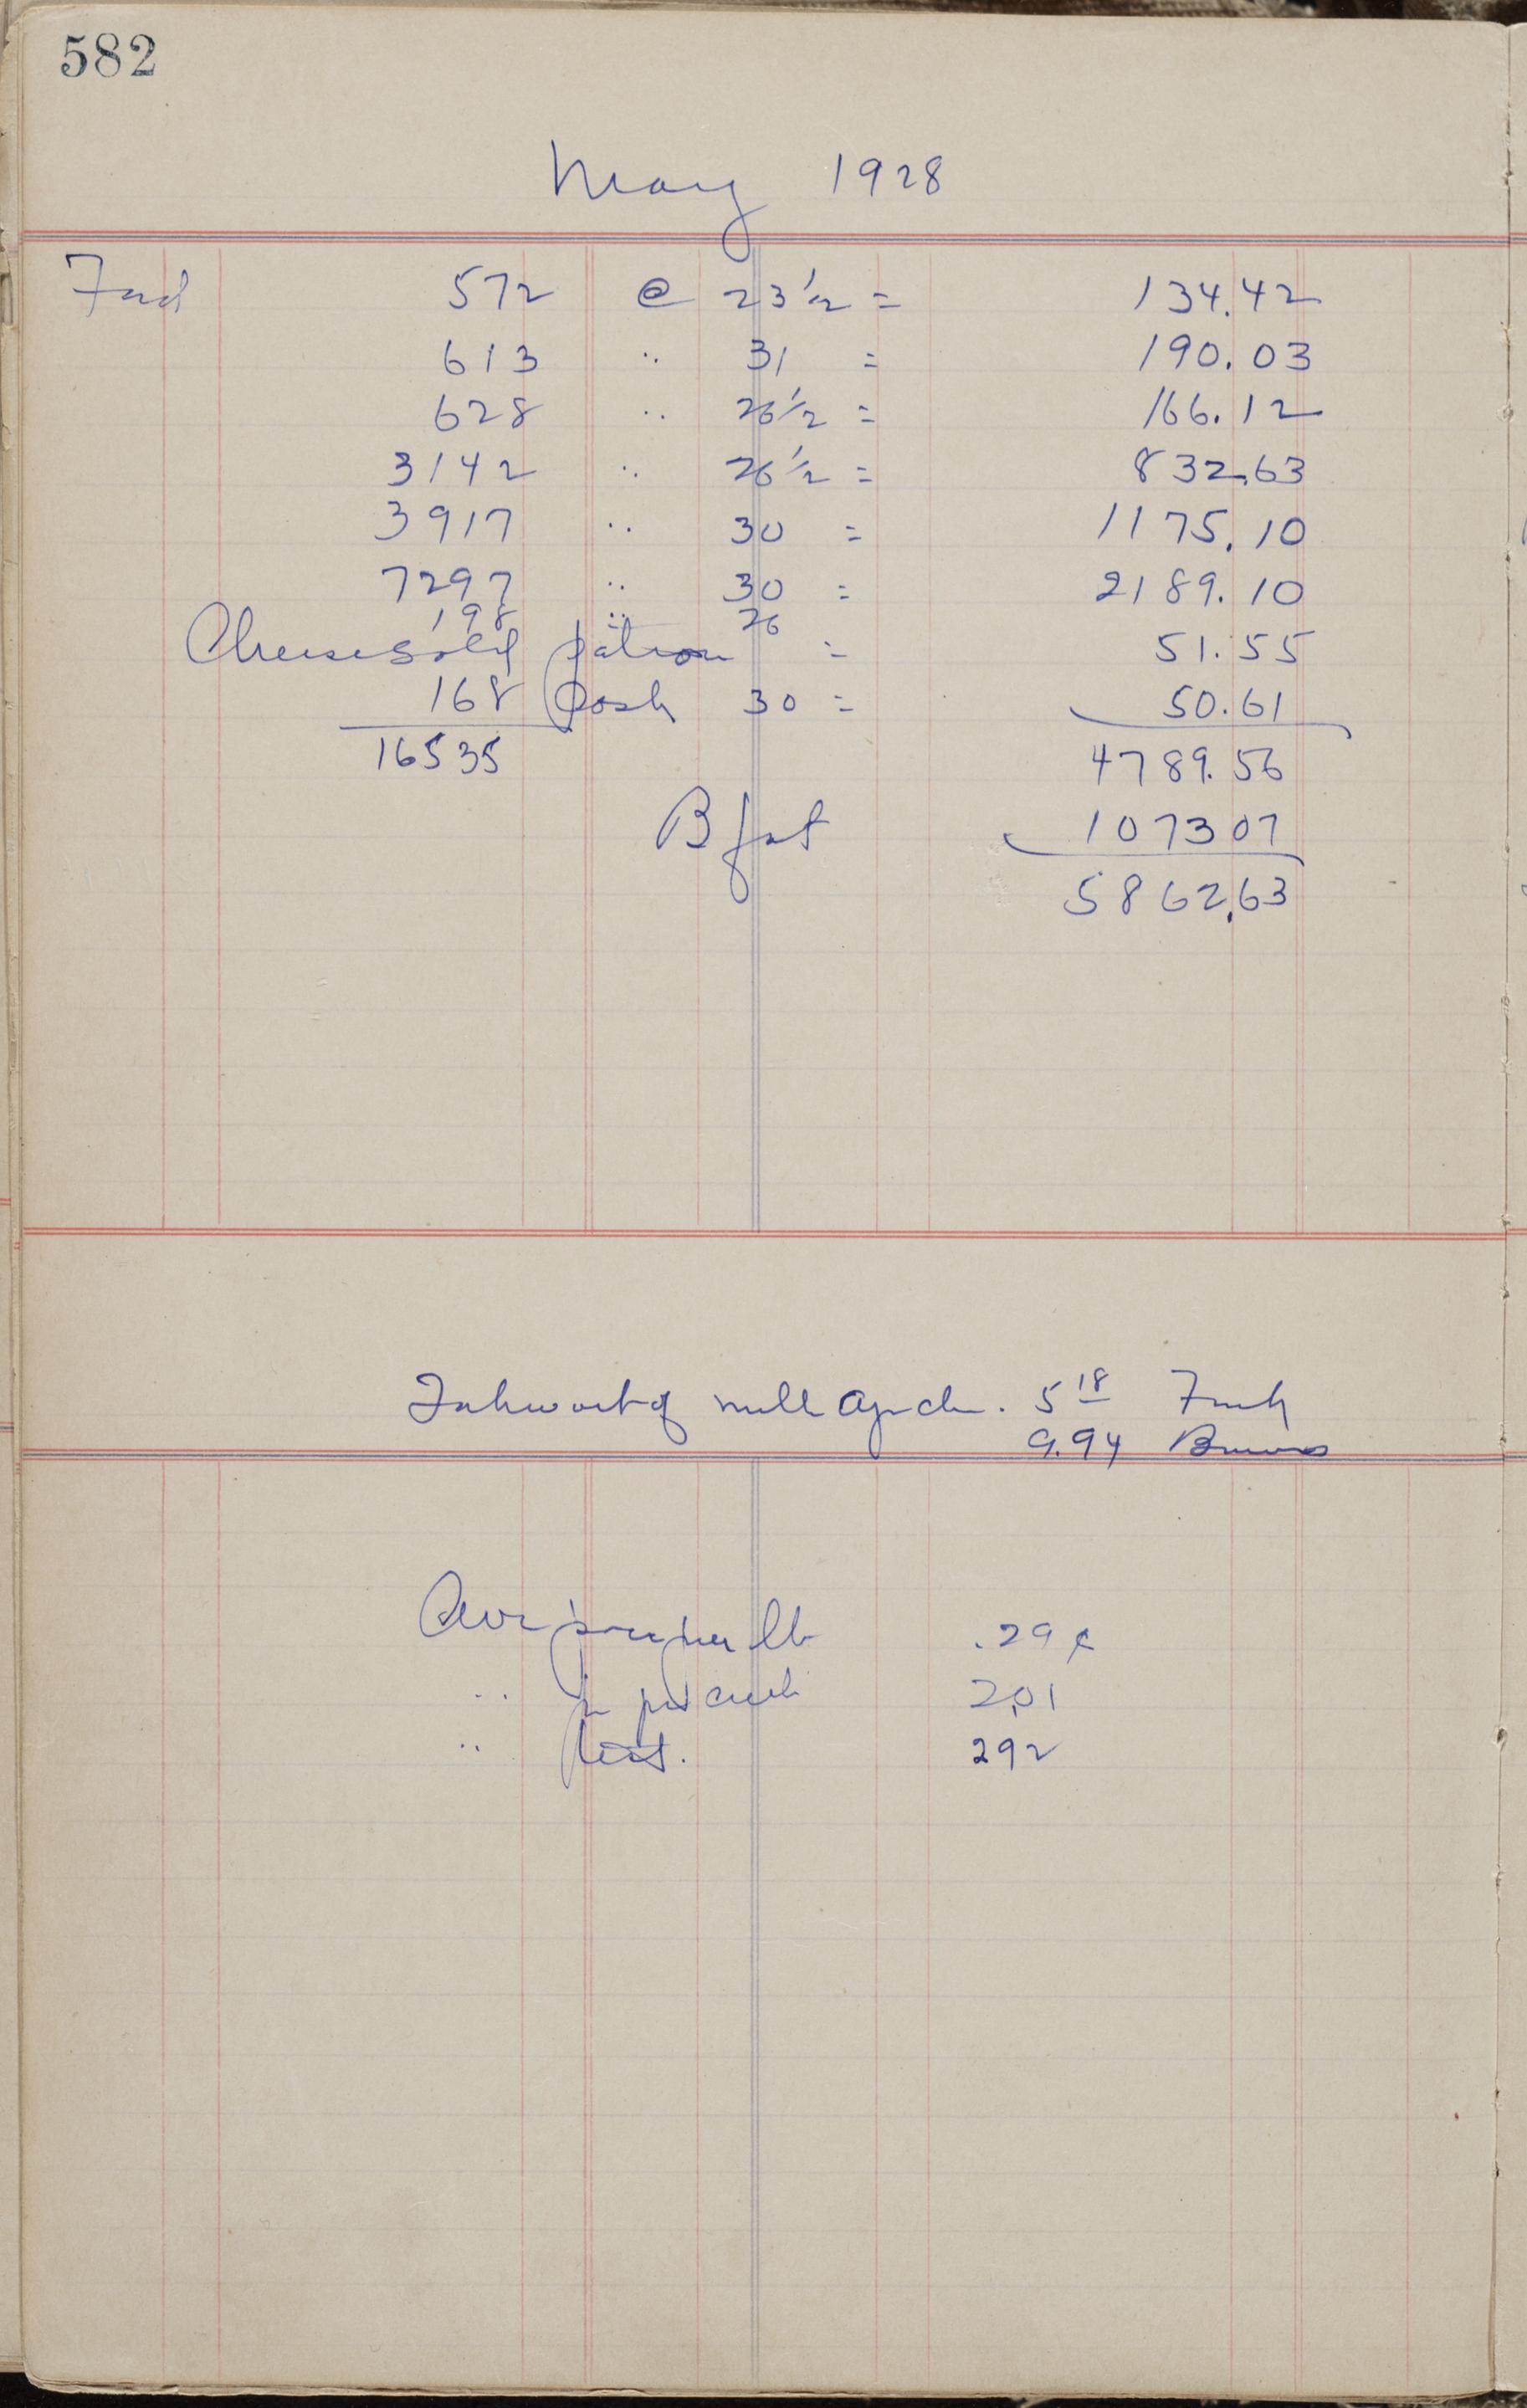 582
May 1928
572 @ 23 1/2 = 134.42
613 " 31 = 190.03
628 " 26 1/2 = 166.12
3142 " 26 1/2 = 832.63
3917 " 30 = 1175.10
7297 " 30 = 2189.10
198 " 26
Cheese sold patron = 51.55
168 Cash 30 = 50.61
16535 4789.56
B fat 1073 07
5862.63
of milk 5 18
9.94
Ave price per lb .29 ¢
" " per 2.01
" test. 292